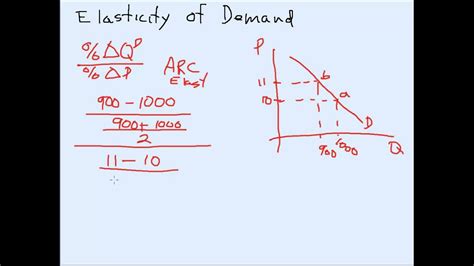 Elasticity of Demand
%ΔQᴰ
%ΔP
ARC
Elast
900 - 1000
900 + 1000
2
11 - 10
P
11
10
b
a
D
900
1000
Q